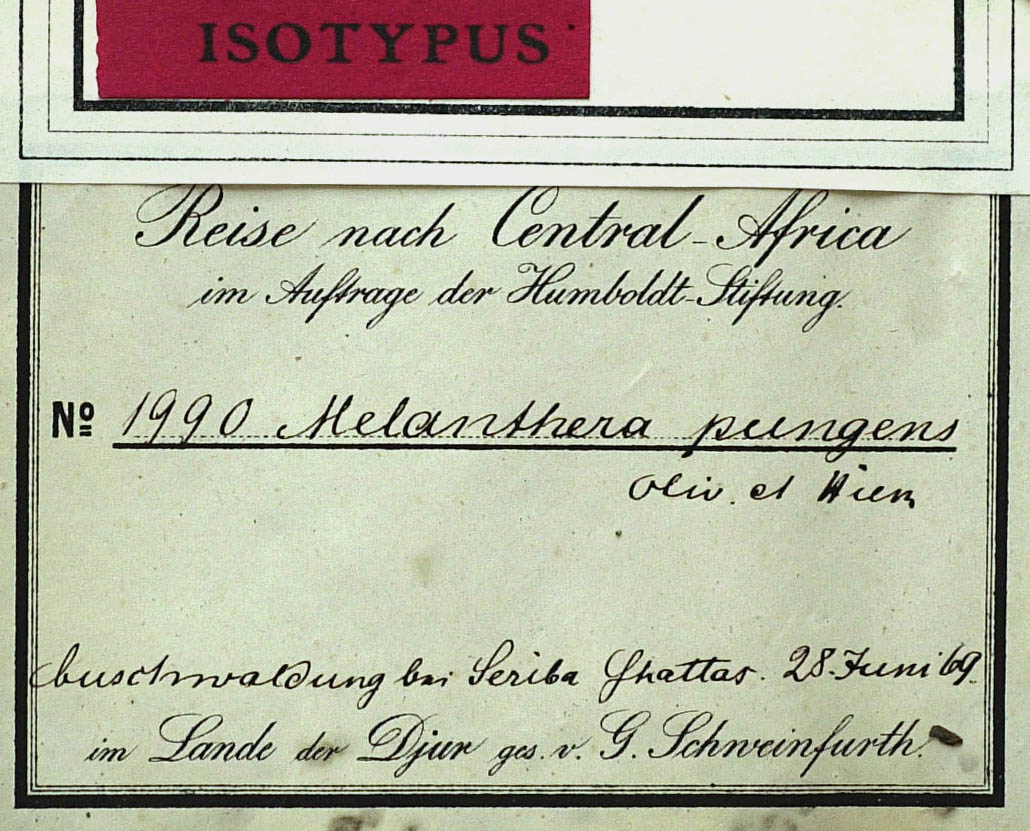 ISOTYPUS
Reise nach Central-Africa
im Auftrage der Humboldt-Stiftung.
No 1990 Melanthera pungens
Oliv. et Hiern
buschwaldung bei Seriba Ghattas. 28. Juni 69.
im Lande der Djur ges. v. G. Schweinfurth.